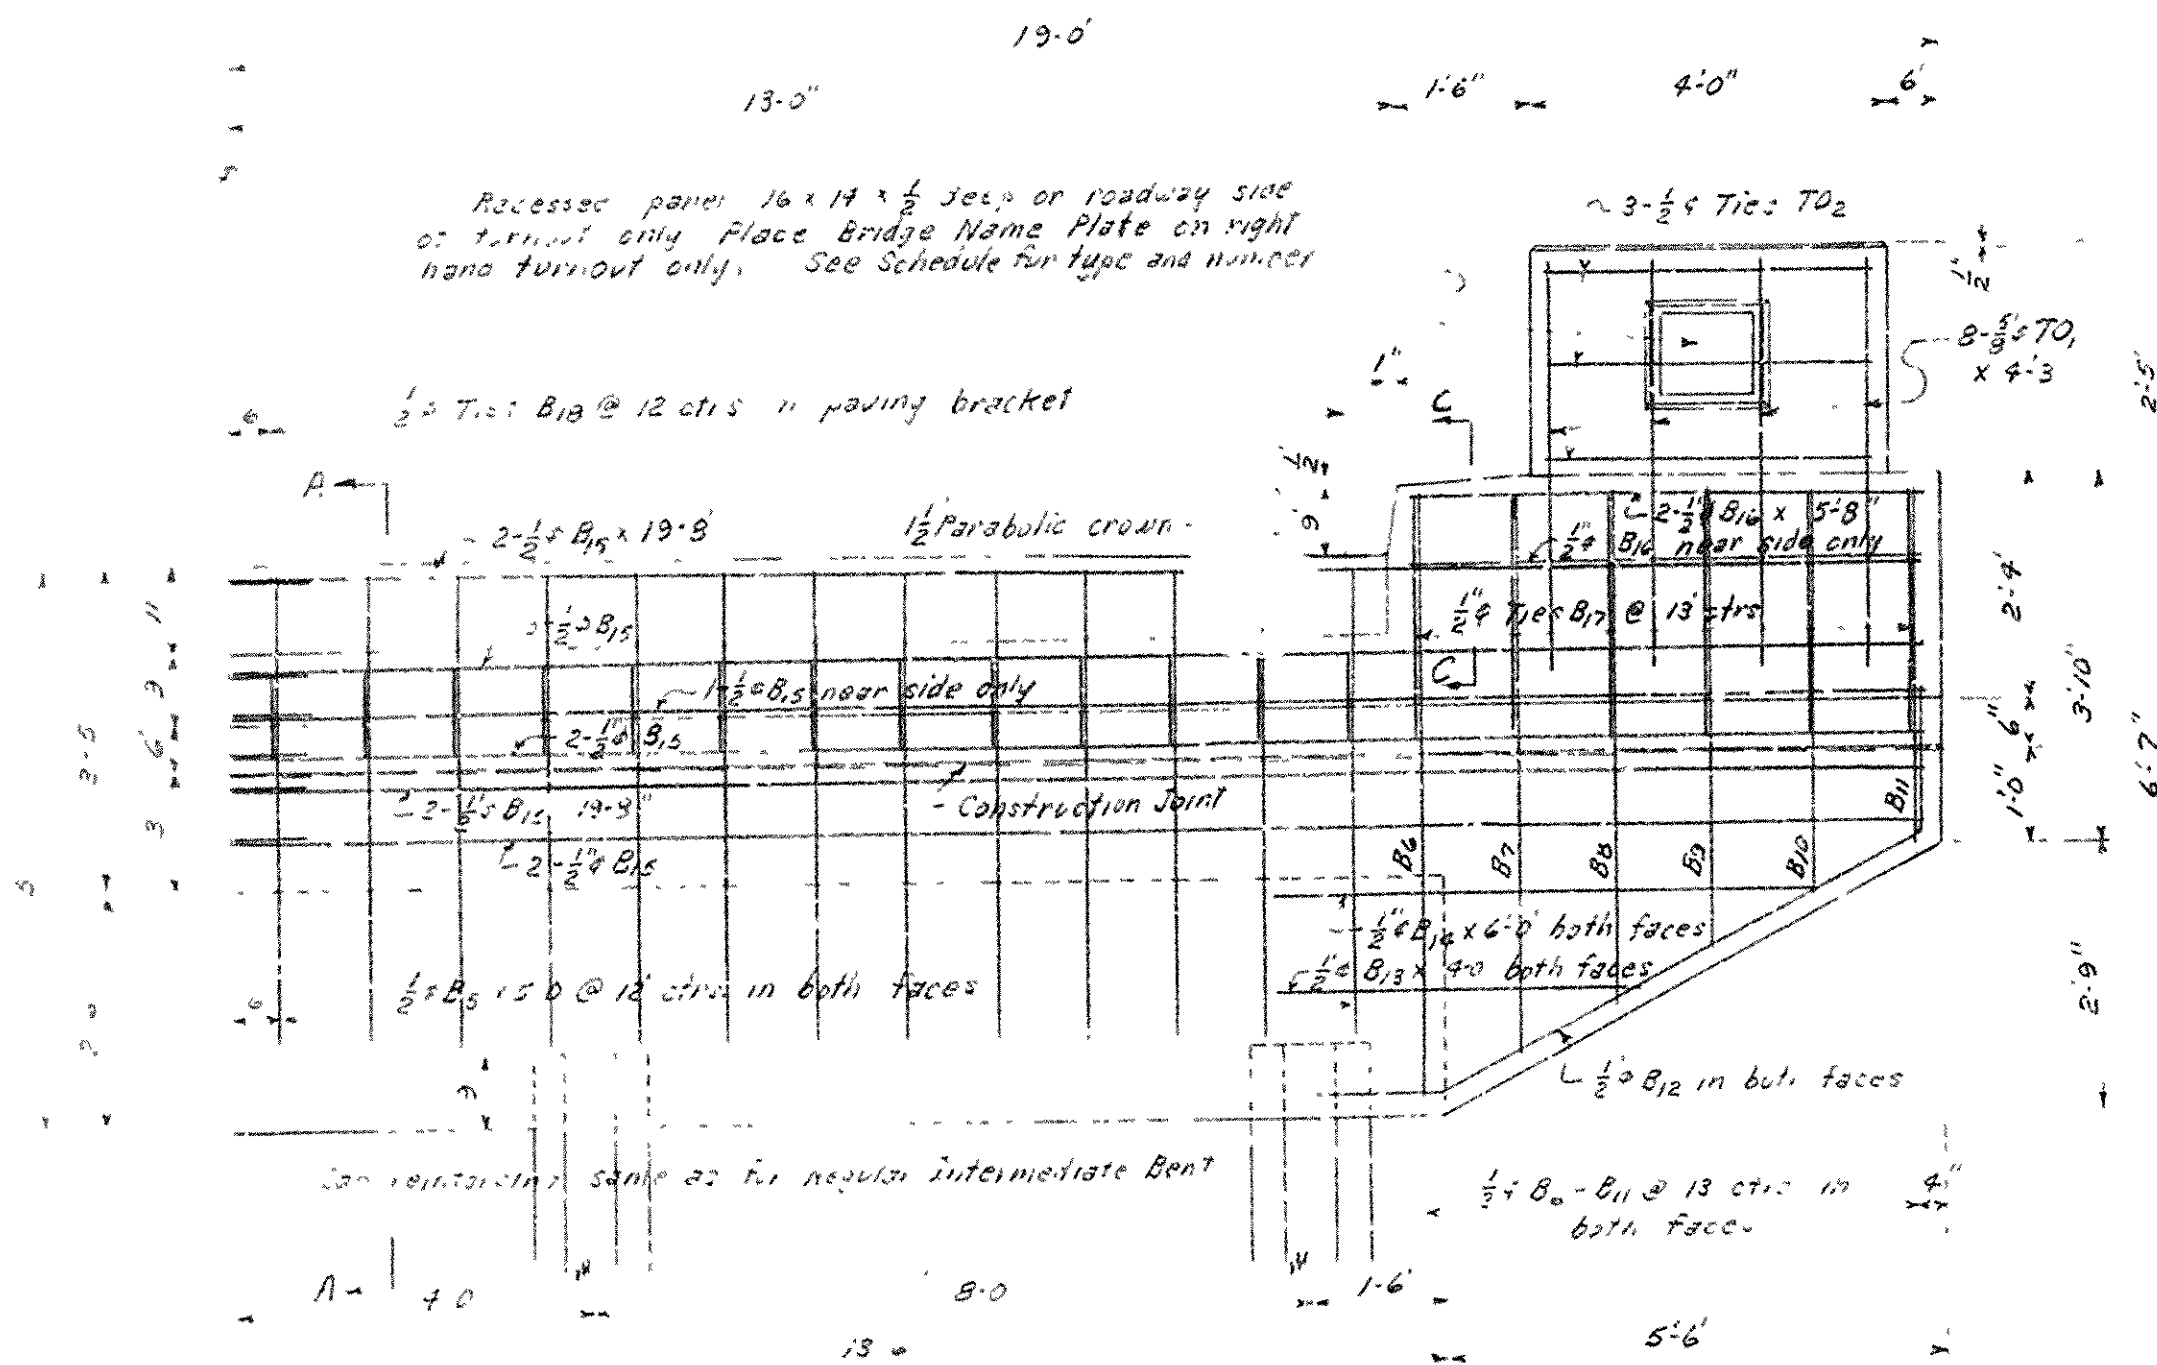 19-0'
13-0"
1'-6"
4'-0"
6'
Recessed panel 16 x 14 x 1/2 deep on roadway side
of turnout only Place Bridge Name Plate on right
hand turnout only. See Schedule for type and number
~ 3-1/2 φ Ties TO2
1/2"
8-5/8 φ TO1
x 4'-3
2'-5'
1"
6
1/2 φ Ties B18 @ 12 ctrs in paving bracket
C
A
1/2
9'
2-1/2 φ B15 x 19-9'
1 1/2 Parabolic crown -
2-1/2" φ B16 x 5'-8"
1/2" φ B16 near side only
1/2" φ Ties B17 @ 13' ctrs
C
2'-4'
3'-10"
6'-7"
6"
1'-0"
11
3
6'
3
2-5
1/2 φ B15
1-1/2 φ B15 near side only
2-1/2" φ B15
2-1/2" φ B15 19-9"
- Construction Joint
2-1/2" φ B15
B6
B7
B8
B9
B10
B11
1/2" φ B14 x 6'-0' both faces
1/2" φ B13 x 4-0 both faces
2'-9"
6
1/2 φ B5 x 5 0 @ 12' ctrs in both faces
9
1/2" φ B12 in both faces
reinforcing same as for regular intermediate Bent
1/2 φ B6 - B11 @ 13 ctrs in
both faces
4"
A
4 0
8-0
1-6'
13 6
5'-6'